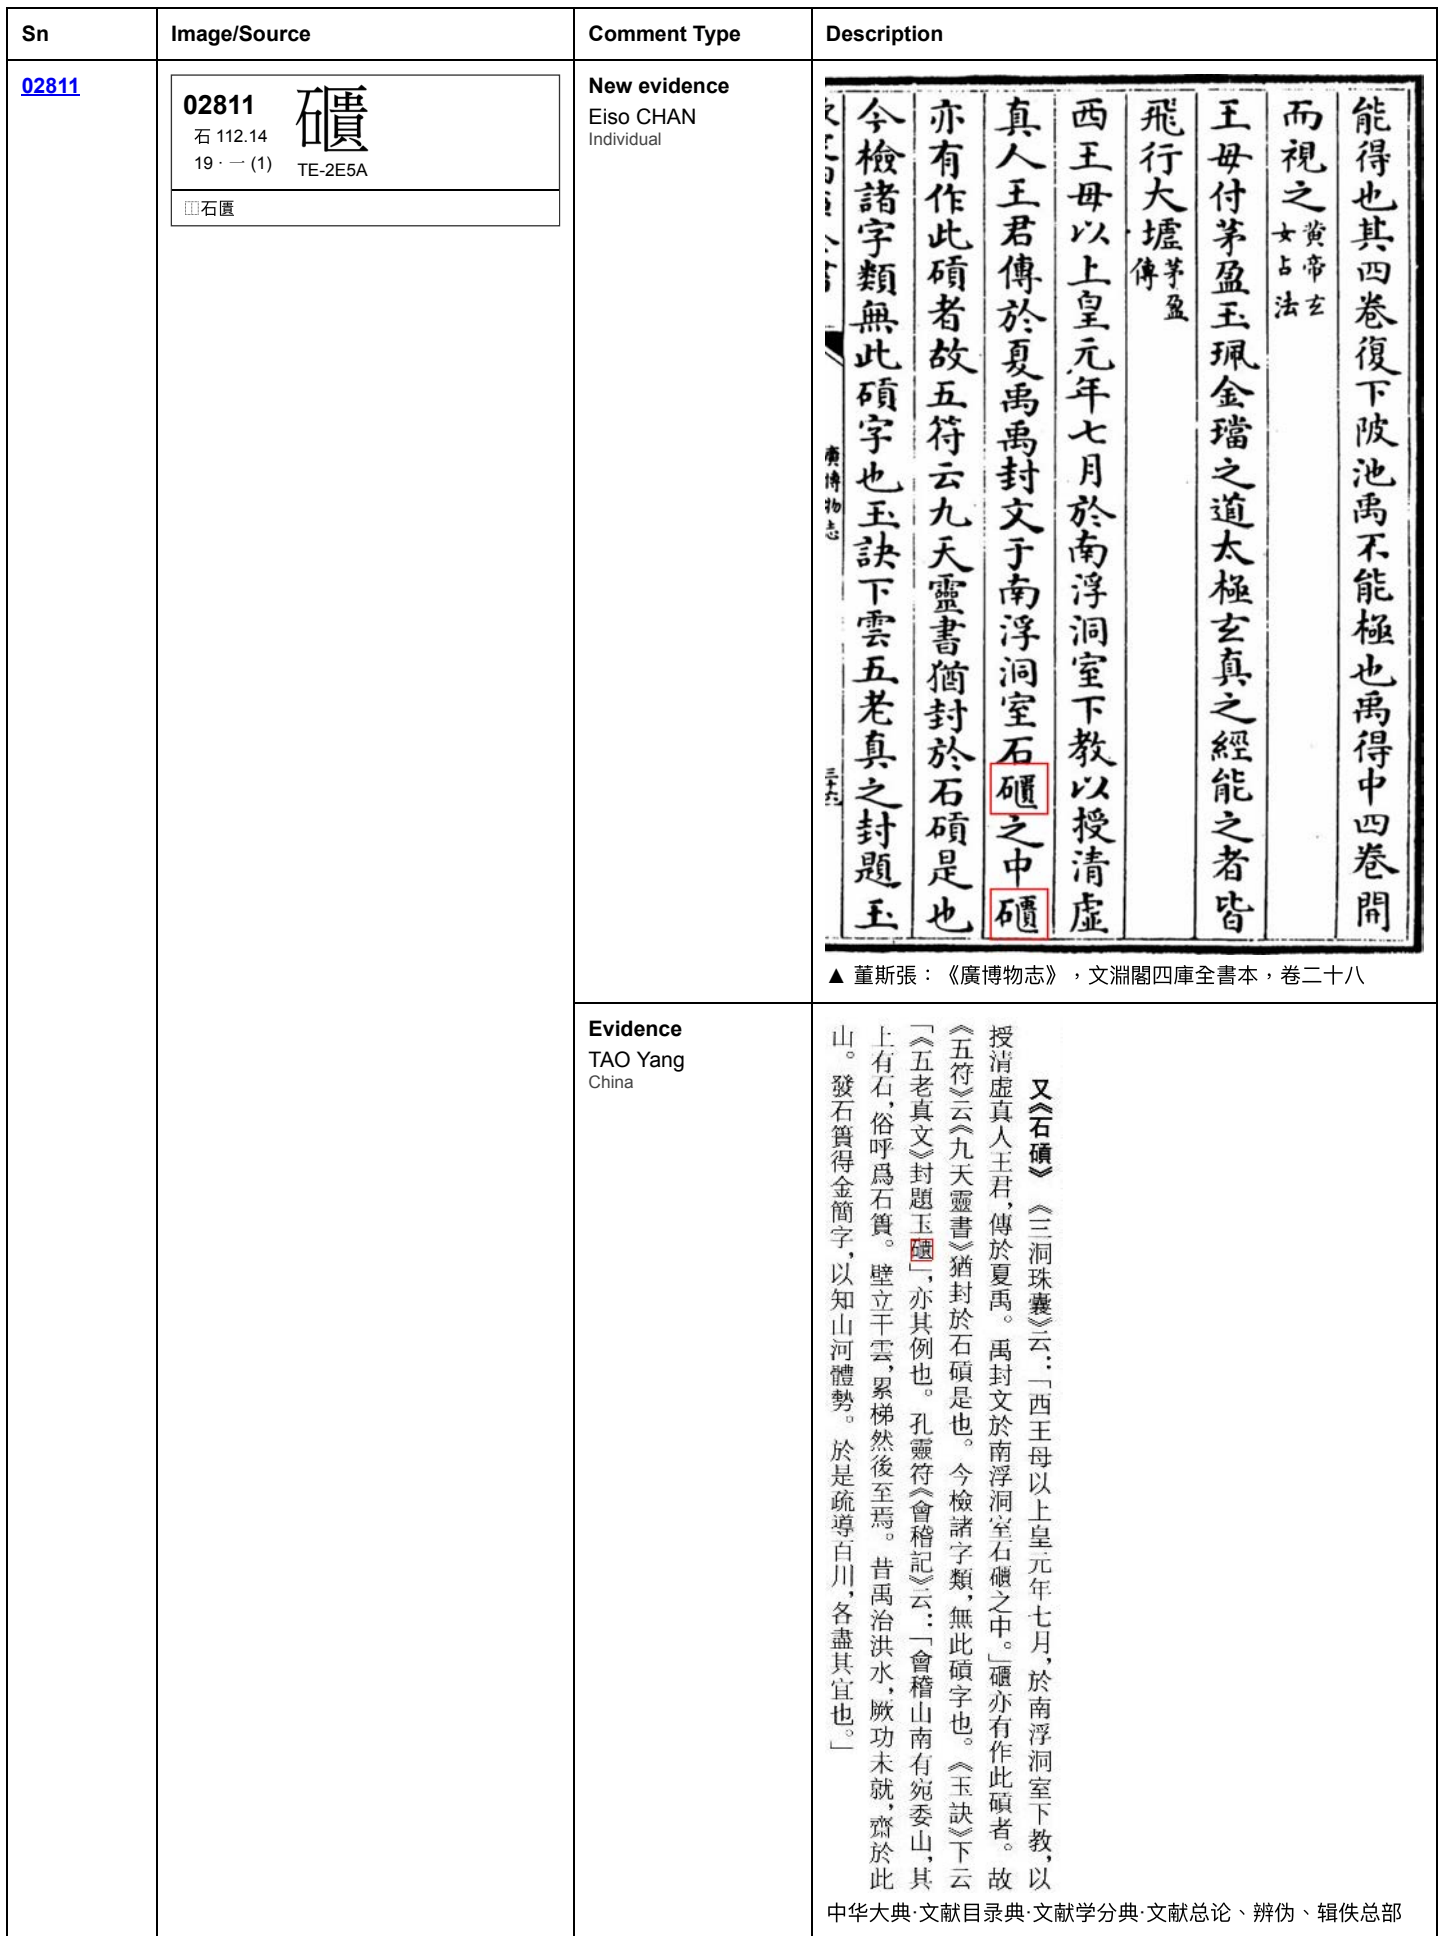 Sn Image/Source Comment Type Description
02811
02811
石 112.14
19 · 一 (1)
⿰石匱
TE-2E5A
⿰石匱
New evidence
Eiso CHAN
Individual
能得也其四卷復下陂池禹不能極也禹得中四卷開
而視之黃帝玄女占法
王母付茅盈玉珮金璫之道太極玄真之經能之者皆
飛行大墟茅盈傳
西王母以上皇元年七月於南浮洞室下教以授清虛
真人王君傳於夏禹禹封文于南浮洞室石⿰石匱之中⿰石匱
亦有作此碩者故五符云九天靈書猶封於石碩是也
今檢諸字類無此碩字也玉訣下雲五老真之封題玉
廣博物志
三十六
▲ 董斯張：《廣博物志》，文淵閣四庫全書本，卷二十八
Evidence
TAO Yang
China
又《石碩》　《三洞珠囊》云：「西王母以上皇元年七月，於南浮洞室下教，以
授清虛真人王君，傳於夏禹。禹封文於南浮洞室石⿰石匱之中。」⿰石匱亦有作此碩者。故
《五符》云《九天靈書》猶封於石碩是也。今檢諸字類，無此碩字也。《玉訣》下云
「《五老真文》封題玉⿰石匱」，亦其例也。孔靈符《會稽記》云：「會稽山南有宛委山，其
上有石，俗呼爲石簣。壁立干雲，累梯然後至焉。昔禹治洪水，厥功未就，齋於此
山。發石簣得金簡字，以知山河體勢。於是疏導百川，各盡其宜也。」
中华大典·文献目录典·文献学分典·文献总论、辨伪、辑佚总部